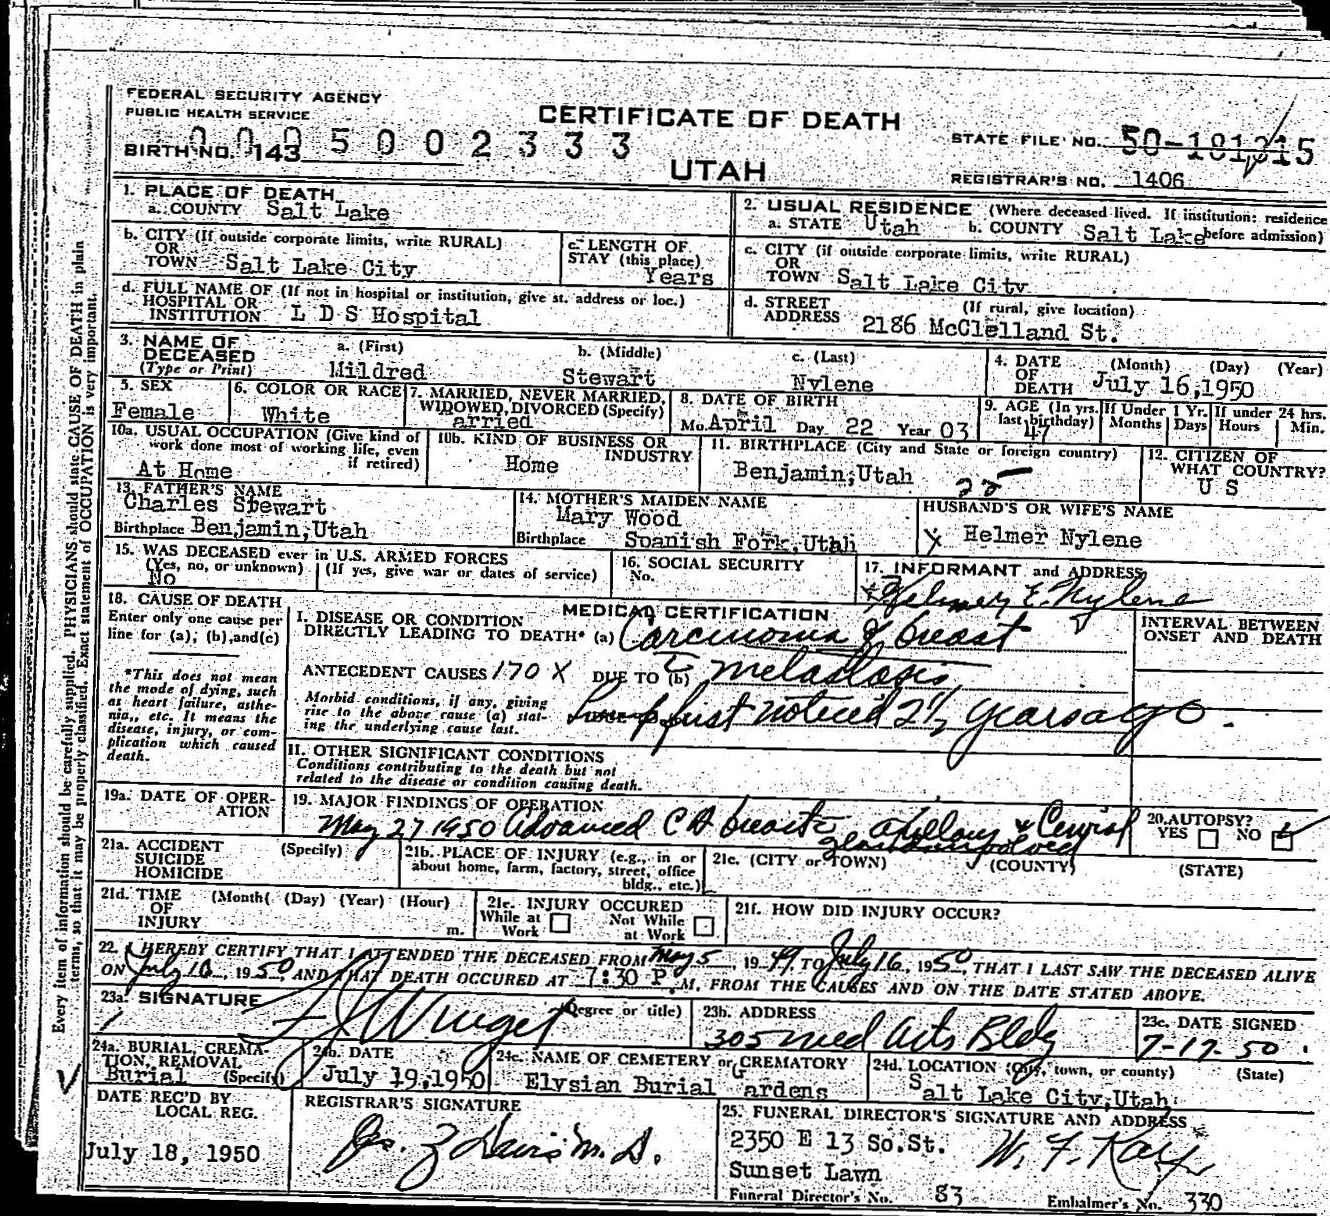 FEDERAL SECURITY AGENCY
PUBLIC HEALTH SERVICE
CERTIFICATE OF DEATH
UTAH
0005002333
BIRTH NO. 143
STATE FILE NO.
REGISTRAR'S NO. 1406
1. PLACE OF DEATH
a. COUNTY Salt Lake
2. USUAL RESIDENCE (Where deceased lived. If institution: residence before admission)
a. STATE Utah b. COUNTY Salt Lake
b. CITY (If outside corporate limits, write RURAL)
OR
TOWN Salt Lake City
c. LENGTH OF
STAY (this place)
Years
c. CITY (if outside corporate limits, write RURAL)
OR
TOWN Salt Lake City
d. FULL NAME OF (If not in hospital or institution, give st. address or loc.)
HOSPITAL OR
INSTITUTION L D S Hospital
d. STREET (If rural, give location)
ADDRESS 2186 McClelland St.
3. NAME OF
DECEASED
(Type or Print)
a. (First) b. (Middle) c. (Last)
Mildred Stewart Nylene
4. DATE (Month) (Day) (Year)
OF
DEATH July 16,1950
5. SEX
Female
6. COLOR OR RACE
White
7. MARRIED, NEVER MARRIED,
WIDOWED, DIVORCED (Specify)
arried
8. DATE OF BIRTH
Mo. April Day 22 Year 03
9. AGE (In yrs. last birthday)
47
If Under 1 Yr.
Months Days
If under 24 hrs.
Hours Min.
10a. USUAL OCCUPATION (Give kind of
work done most of working life, even
if retired)
At Home
10b. KIND OF BUSINESS OR
INDUSTRY
Home
11. BIRTHPLACE (City and State or foreign country)
Benjamin,Utah
12. CITIZEN OF
WHAT COUNTRY?
U S
13. FATHER'S NAME
Charles Stewart
Birthplace Benjamin,Utah
14. MOTHER'S MAIDEN NAME
Mary Wood
Birthplace Spanish Fork,Utah
HUSBAND'S OR WIFE'S NAME
X Helmer Nylene
15. WAS DECEASED ever in U.S. ARMED FORCES
(Yes, no, or unknown) (If yes, give war or dates of service)
No
16. SOCIAL SECURITY
No.
17. INFORMANT and ADDRESS
Helmer E. Nylene
18. CAUSE OF DEATH
Enter only one cause per
line for (a), (b), and (c)
*This does not mean
the mode of dying, such
as heart failure, asthe-
nia,, etc. It means the
disease, injury, or com-
plication which caused
death.
MEDICAL CERTIFICATION
I. DISEASE OR CONDITION
DIRECTLY LEADING TO DEATH* (a) Carcinoma of breast
ANTECEDENT CAUSES 170 X DUE TO (b) c metastasis
Morbid conditions, if any, giving
rise to the above cause (a) stat-
ing the underlying cause last.
Lump first noticed 2 1/2 years ago.
INTERVAL BETWEEN
ONSET AND DEATH
II. OTHER SIGNIFICANT CONDITIONS
Conditions contributing to the death but not
related to the disease or condition causing death.
19a. DATE OF OPER-
ATION
19. MAJOR FINDINGS OF OPERATION
May 27 1950 Advanced CA breast c axillary & Cervical
glands involved
20. AUTOPSY?
YES NO
21a. ACCIDENT (Specify)
SUICIDE
HOMICIDE
21b. PLACE OF INJURY (e.g., in or
about home, farm, factory, street, office
bldg., etc.)
21c. (CITY or TOWN) (COUNTY) (STATE)
21d. TIME (Month( (Day) (Year) (Hour)
OF
INJURY m.
21e. INJURY OCCURED
While at Work Not While at Work
21f. HOW DID INJURY OCCUR?
22. I HEREBY CERTIFY THAT I ATTENDED THE DECEASED FROM May 5, 1949, TO July 16, 1950, THAT I LAST SAW THE DECEASED ALIVE
ON July 16, 1950, AND THAT DEATH OCCURED AT 7:30 P.M. FROM THE CAUSES AND ON THE DATE STATED ABOVE.
23a. SIGNATURE (Degree or title)
23b. ADDRESS
305 Med Arts Bldg
23c. DATE SIGNED
7-17-50
24a. BURIAL, CREMA-
TION, REMOVAL
(Specify)
Burial
24b. DATE
July 19,1950
24c. NAME OF CEMETERY or CREMATORY
Elysian Burial Gardens
24d. LOCATION (City, town, or county) (State)
Salt Lake City,Utah
DATE REC'D BY
LOCAL REG.
July 18, 1950
REGISTRAR'S SIGNATURE
25. FUNERAL DIRECTOR'S SIGNATURE AND ADDRESS
2350 E 13 So.St.
Sunset Lawn
Funeral Director's No. 83 Embalmer's No. 330
Every item of information should be carefully supplied. PHYSICIANS should state CAUSE OF DEATH in plain
terms, so that it may be properly classified. Exact statement of OCCUPATION is very important.